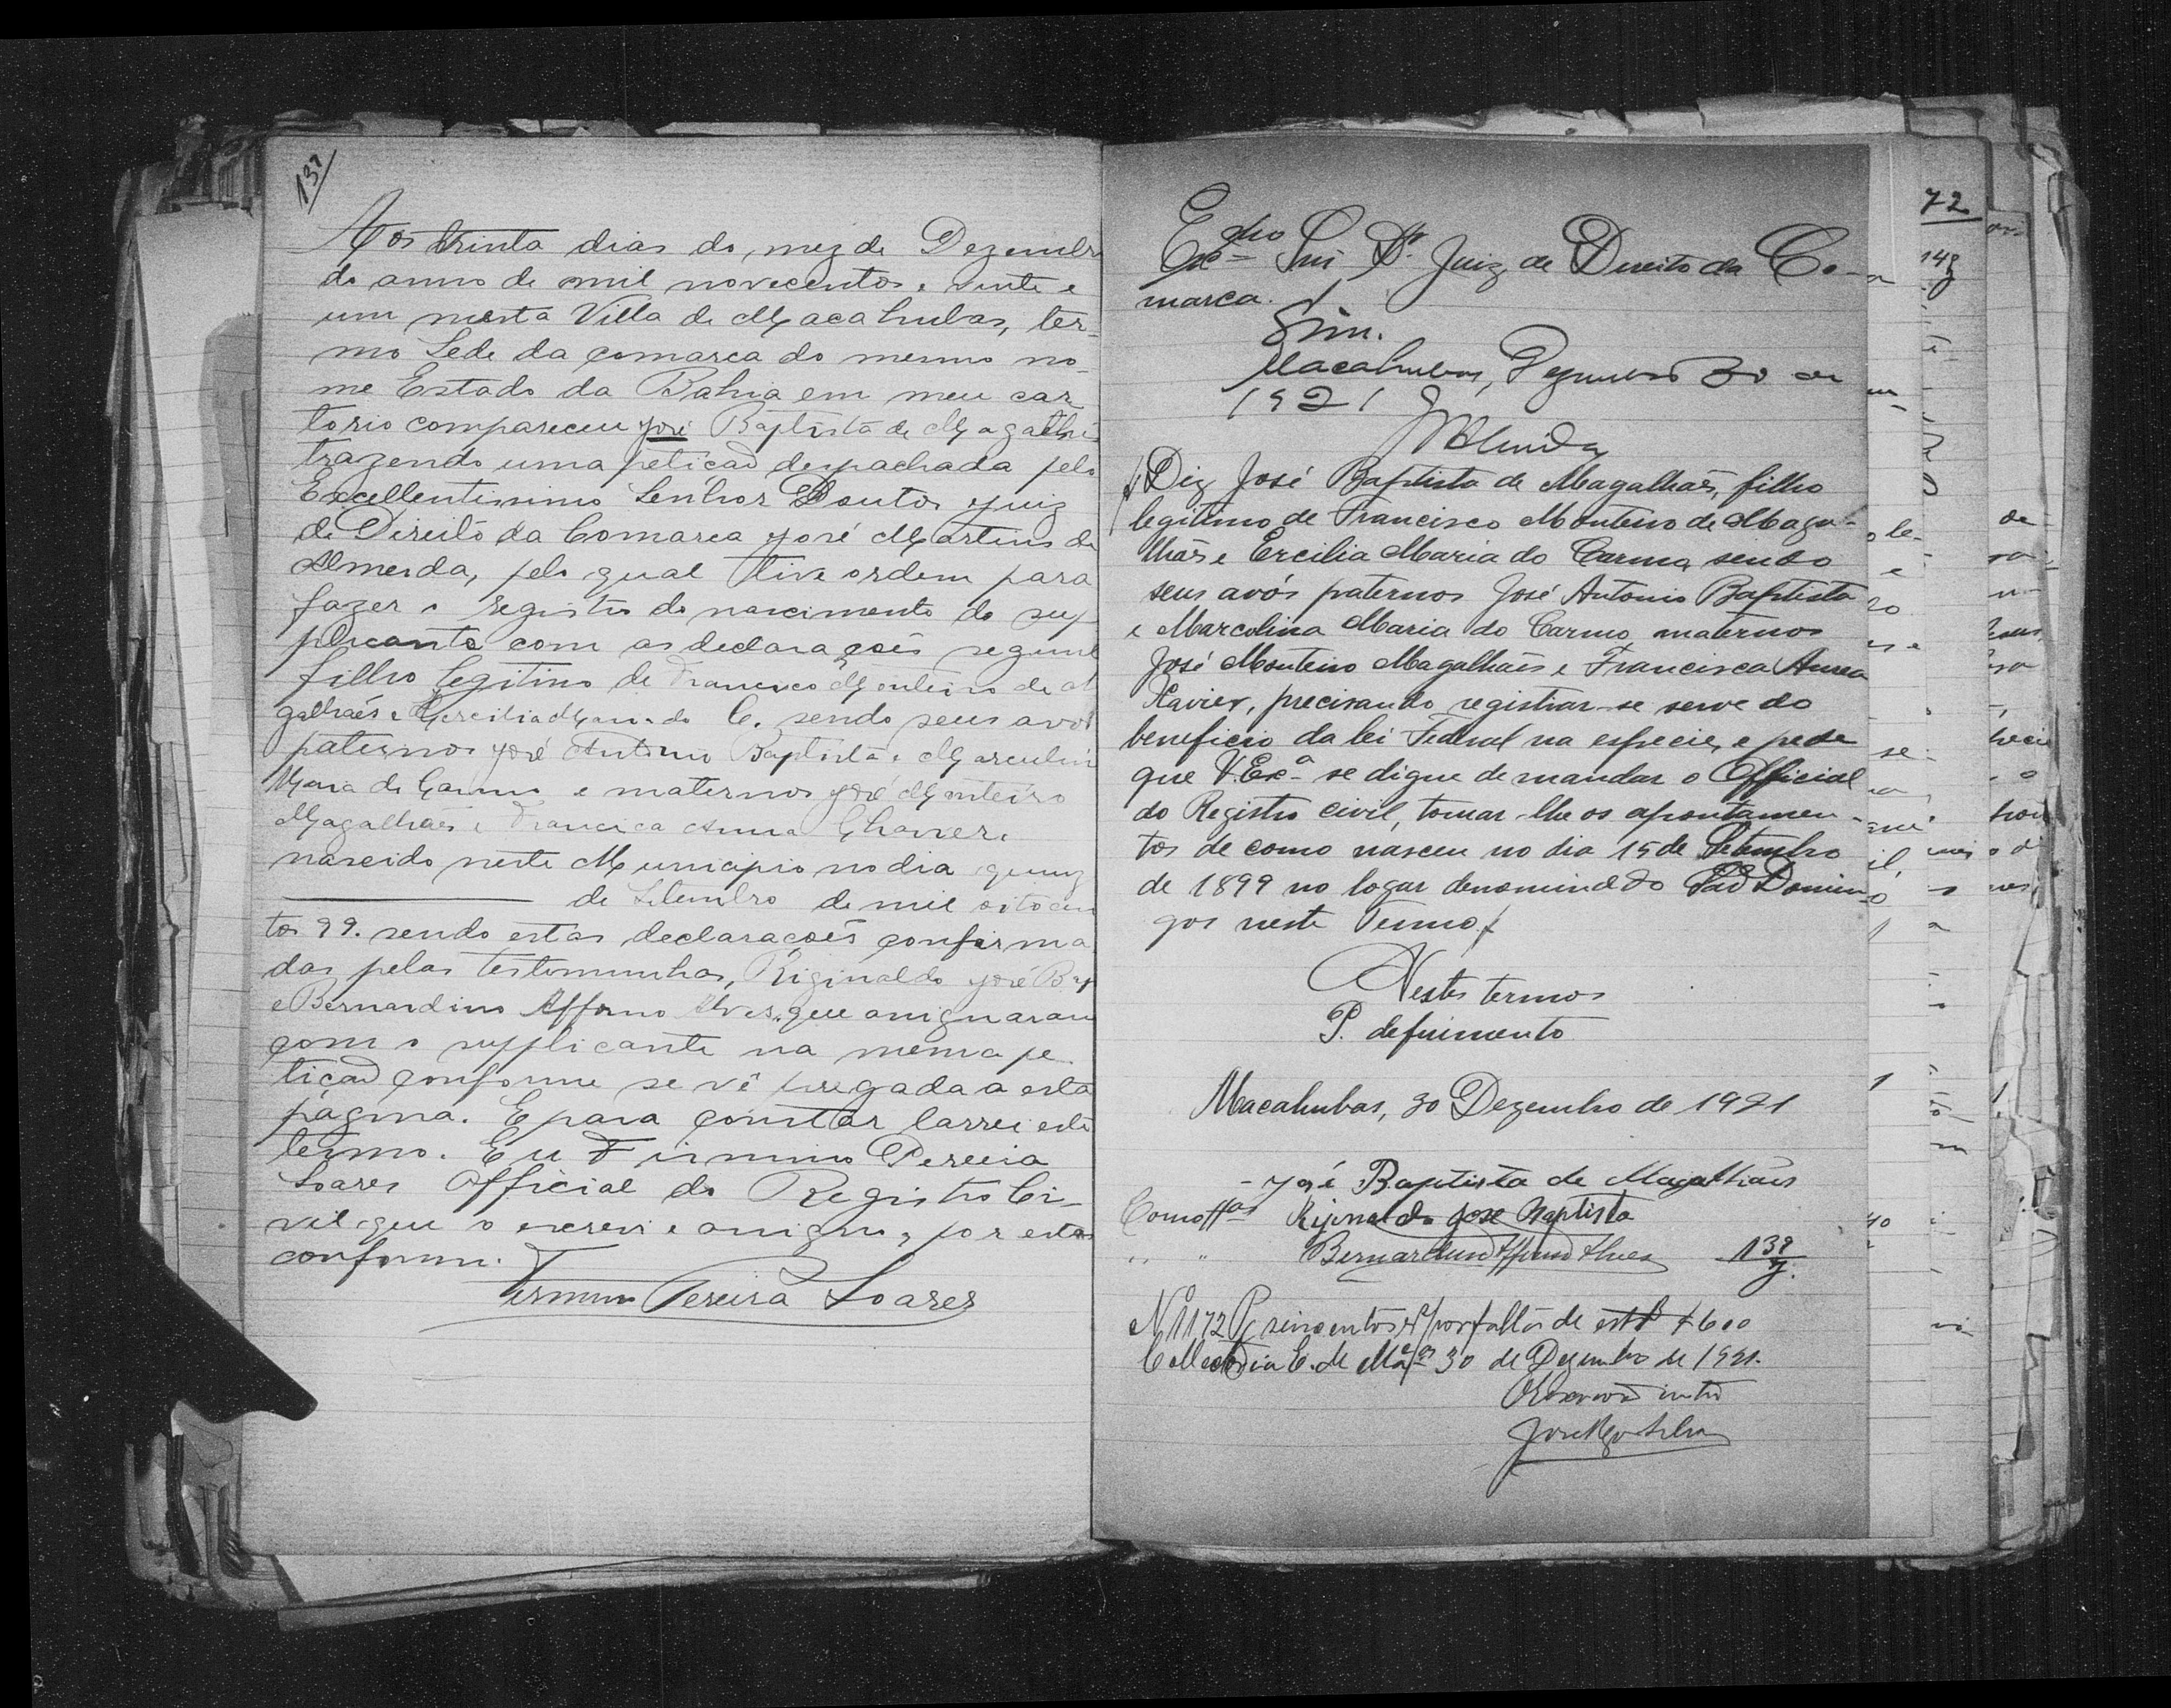 137
Aos trinta dias do mez de Dezembr
do anno de mil novecentos e vinte e
um nesta Villa de Macahubas, ter-
mo Sede da comarca do mesmo no-
me Estado da Bahia em meu car
torio compareceu José Baptista de Magalhã
trazendo uma petição despachada pelo
Excellentissimo Senhor Doutor Juiz
de Direito da Comarca José Martins de
Almeida, pelo qual tive ordem para
fazer o registro do nascimento do sup
plicante com as declarações seguint
filho legitimo de Francisco Monteiro de M
galhães e Hercilia Mari do C. sendo seus avós
paternos José Antonio Baptista e Marculin
Maria do Carmo e maternos José Monteiro
Magalhães e Francisca Anna Chavier e
nascido neste Municipio no dia quinz
de Setembro de mil oitocen
tos 99. sendo estas declarações confirma
das pelas testemunhas, Riginaldo José Bap
e Bernardino Affonso Alves, que assignaram
com o supplicante na mesma pe
tição conforme se vê pregada a esta
página. E para constar larrei este
termo. Eu Firmino Pereira
Soares Official do Registro Ci-
vil que o escrevi e assigno, por estar
conforme.
Firmino Pereira Soares
72
148
Exmo Snr Dr. Juiz de Direito da Co-
marca.
Sim.
Macahubas, Dezembro 30 de
1921
Almeida
Diz José Baptista de Magalhães, filho
legitimo de Francisco Monteiro de Maga-
lhães e Ercilia Maria do Carmo, sendo
seus avós paternos José Antonio Baptista
e Marcolina Maria do Carmo, maternos
José Monteiro Magalhães e Francisca Anna
Xavier, precisando registrar-se serve do
beneficio da lei Federal na especie, e pede
que V. Exª se digne de mandar o Official
do Registro civil, tomar-lhe os apontamen-
tos de como nasceu no dia 15 de Setembro
de 1899 no logar denominado São Domin-
gos neste Termo.
Nestes termos
P. deferimento
Macahubas, 30 Dezembro de 1921
José Baptista de Magalhães
Como ttas Rijinaldo José Baptista
" " Bernardino Affonso Alves 137
Nº 1172 Pg seiscentos rs por falta de estp $600
Collectoria E. de Macas 30 de Dezembro de 1921.